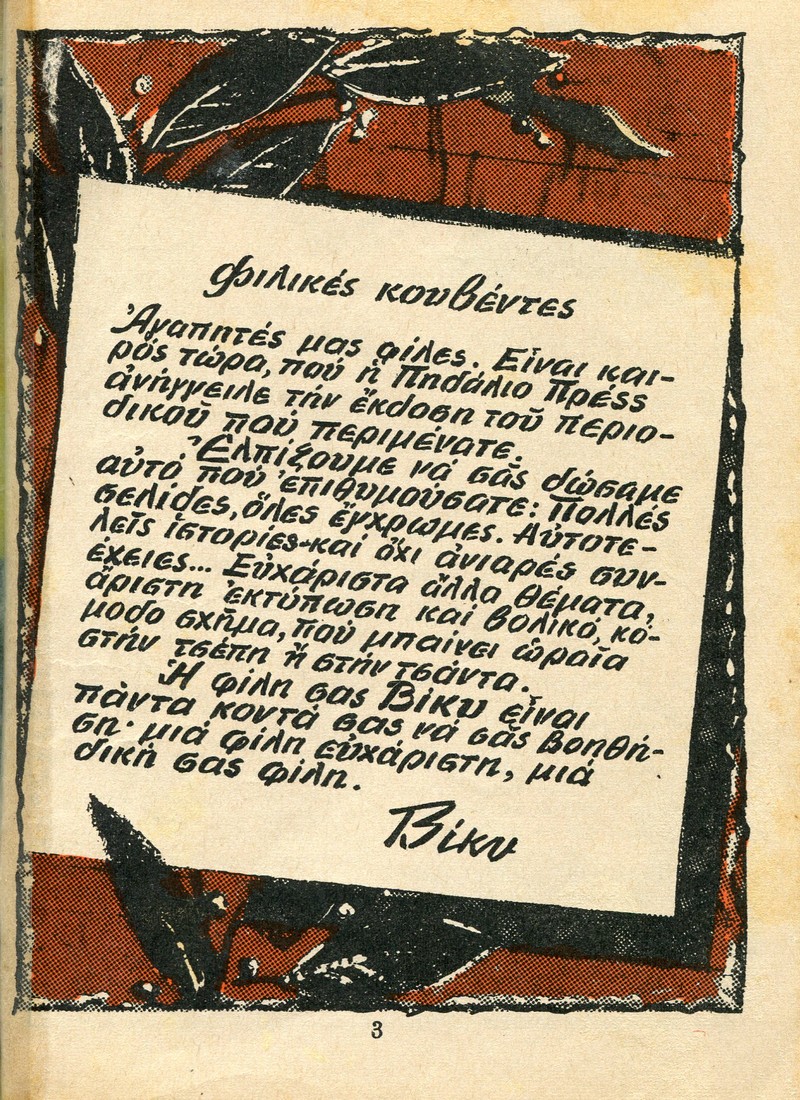 Φιλικές κουβέντες
Ἀγαπητές μας φίλες. Εἶναι και-
ρός τώρα, πού ἡ Πηδάλιο Πρέςς
ἀνήγγειλε τήν ἔκδοση τοῦ περιο-
δικοῦ πού περιμένατε.
Ἐλπίζουμε νά σᾶς δώσαμε
αὐτό πού ἐπιθυμούσατε: Πολλές
σελίδες, ὅλες ἔγχρωμες. Αὐτοτε-
λεῖς ἱστορίες-καί ὄχι ἀνιαρές συν-
έχειες... Εὐχάριστα ἄλλα θέματα,
ἄριστη ἐκτύπωση καί βολικό, κό-
μοδο σχῆμα, πού μπαίνει ὡραῖα
στήν τσέπη ἤ στήν τσάντα.
Ἡ φίλη σας Βίκυ εἶναι
πάντα κοντά σας νά σᾶς βοηθή-
ση· μιά φίλη εὐχάριστη, μιά
δική σας φίλη.
Βίκυ
3